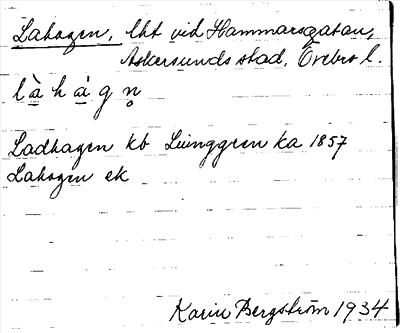 Lahagen, lht vid Hammarsgatan,
Askersunds stad, Örebro l.
l à h á g n̥
Ladhagen kb Ljunggren ka 1857
Lahagen ek
Karin Bergström 1934